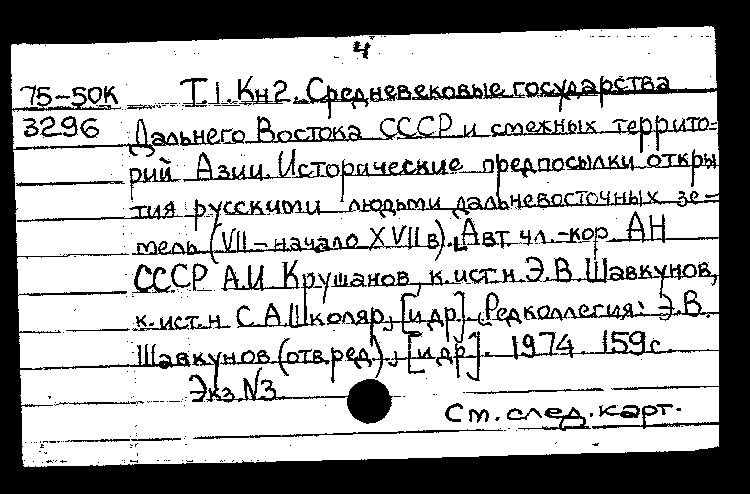 4
75-50К Т.1.Кн2. Средневековые государства
3296 Дальнего Востока СССР и смежных террито-
рий Азии. Исторические предпосылки откры
тия русскими людьми дальневосточных зе-
мель (VII-начало XVII в). Авт. чл.-кор. АН
СССР А.И. Крушанов, к.ист.н. Э.В. Шавкунов,
к.ист.н С.А. Школяр, [и др]. Редколлегия: Э.В.
Шавкунов (отв.ред.), [и др]. 1974. 159с.
Экз.N3.
См. след. карт.